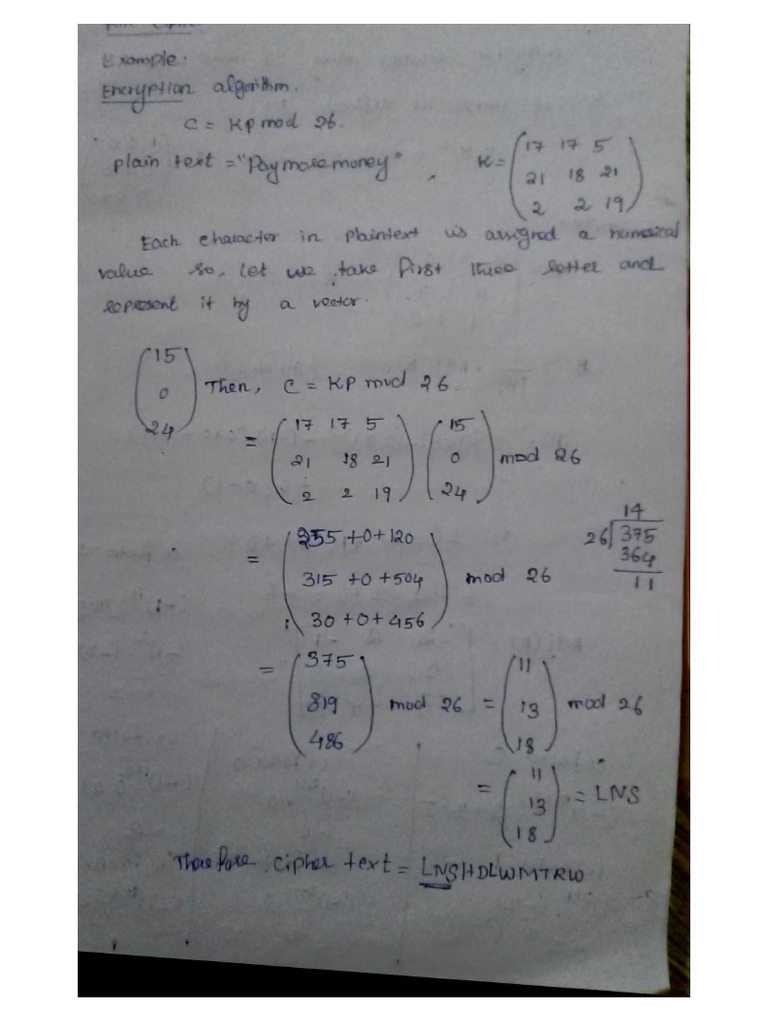 Example:
Encryption algorithm.
C = KP mod 26.
plain text = "Paymoremoney" , K = (17 17 5
21 18 21
2 2 19)
Each character in plaintext is assigned a numerical
value so, let we take first three letter and
represent it by a vector.
(15
0
24) Then, C = KP mod 26.
= (17 17 5
21 18 21
2 2 19) (15
0
24) mod 26
= (255 +0+120
315 +0+504
30+0+456) mod 26
14
26 375
364
11
= (375
819
486) mod 26 = (11
13
18) mod 26
= (11
13
18) = LNS
Therefore cipher text = LNSHDLWMTRW